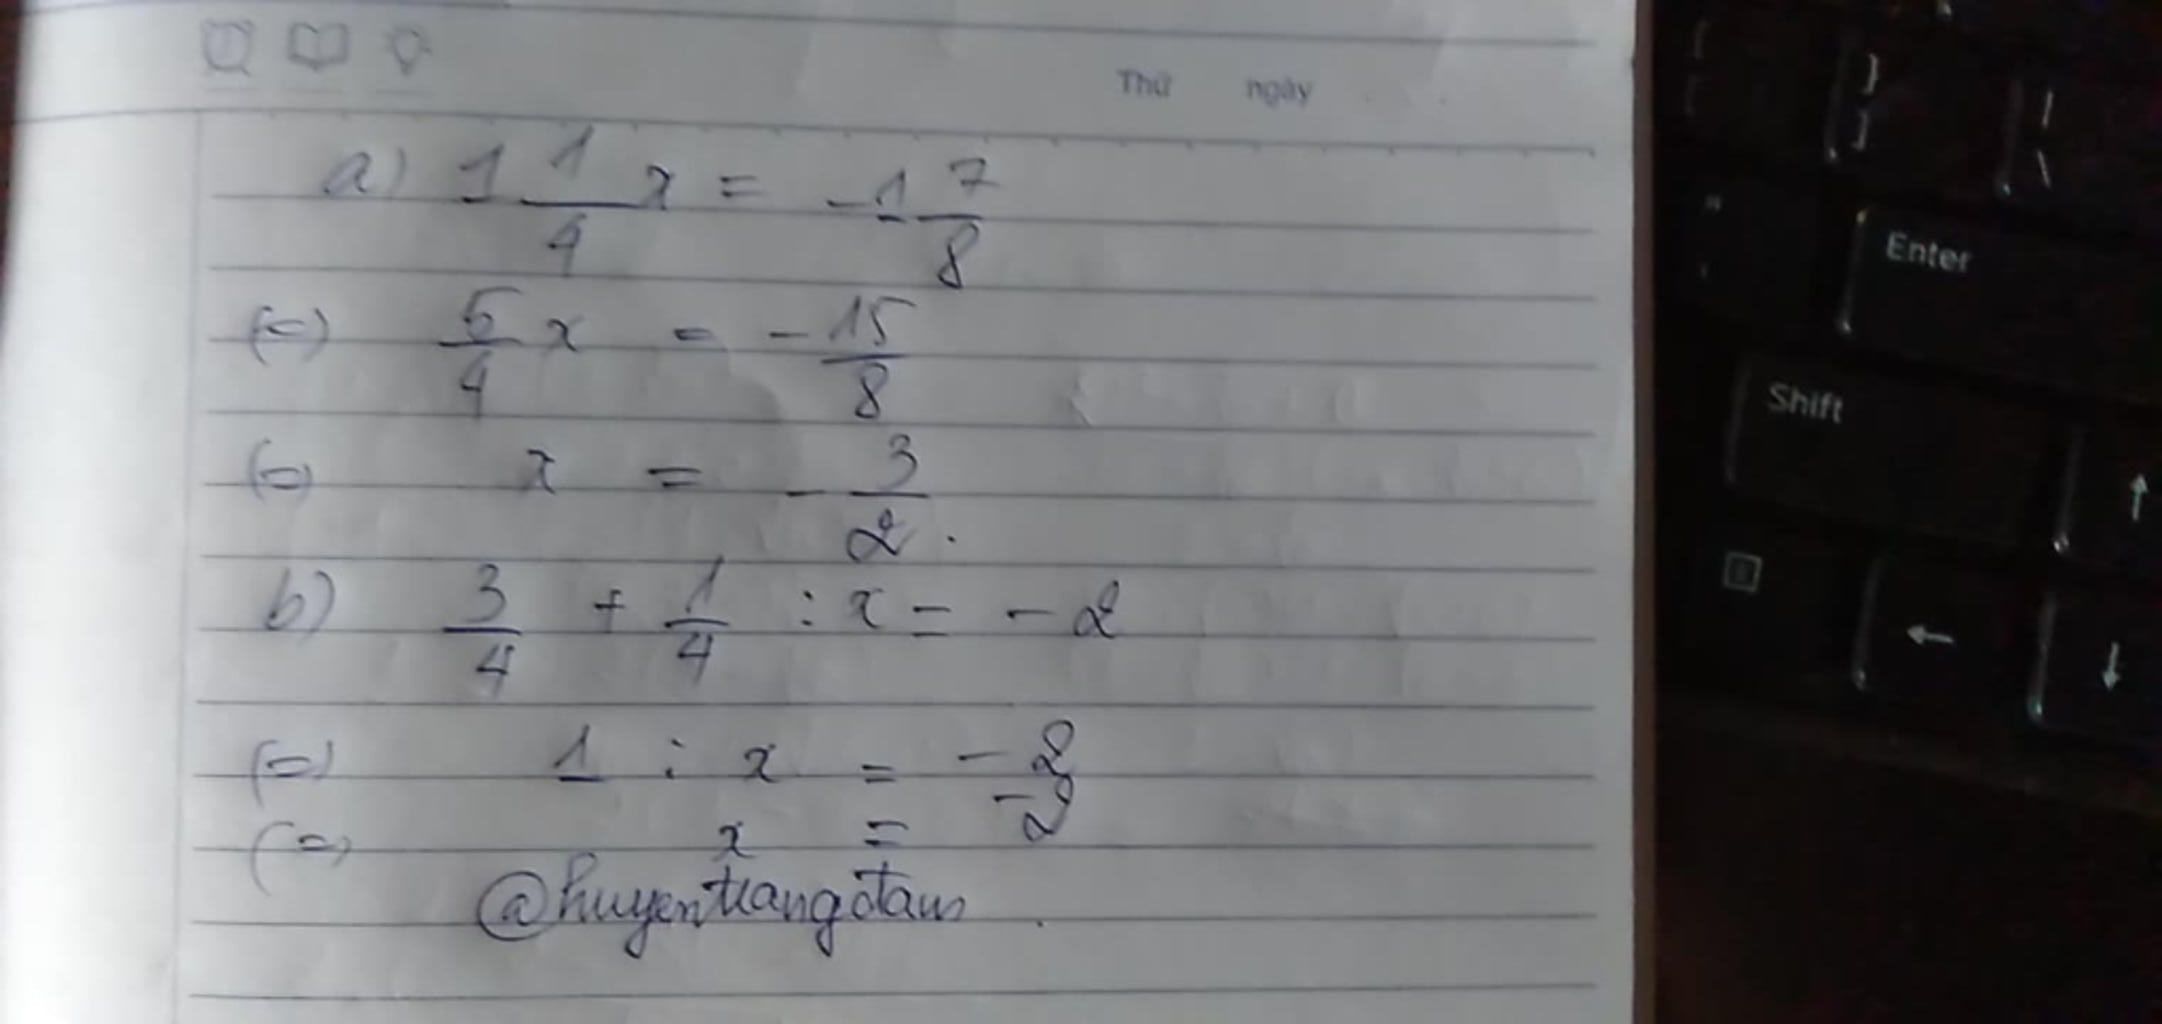 Thứ ngày
a) 1 1/4 x = -1 7/8
(=) 5/4 x = - 15/8
(=) x = - 3/2.
b) 3/4 + 1/4 : x = -2
(=) 1 : x = -2
(=) x = -2
@huyentrangdam.
Enter
Shift